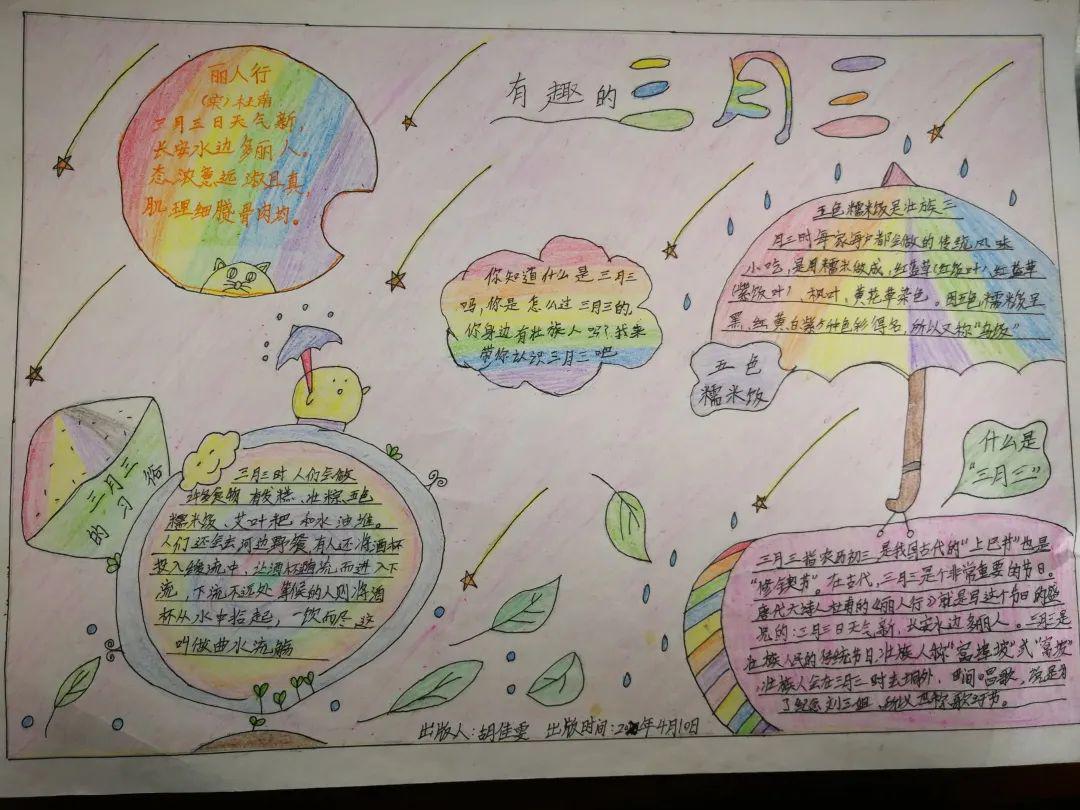 有趣的三月三
丽人行
(宋)杜甫
三月三日天气新,
长安水边多丽人。
态浓意远淑且真,
肌理细腻骨肉均。
你知道什么是三月三
吗,你是怎么过三月三的,
你身边有壮族人吗?我来
带你认识三月三吧
五色糯米饭是壮族三
月三时每家每户都会做的传统风味
小吃,是用糯米做成,红蓝草(红饭叶),红蓝草
(紫饭叶)枫叶,黄花草染色。因五色糯米饭呈
黑,红黄白紫5种色彩得名,所以又称"乌饭"
五色
糯米饭
什么是
"三月三"
三月三的习俗
三月三时人们会做
许多食物有发糕、壮粽五色
糯米饭、艾叶粑和水油堆。
人们还会去河边野餐有人还将酒杯
投入缓流中,让酒杯随流而进入下
流,下流不远处等候的人则将酒
杯从水中拾起,一饮而尽,这
叫做曲水流觞
三月三指农历初三是我国古代的"上巳节"也是
"修禊节"。在古代,三月三是个非常重要的节日。
唐代大诗人杜甫的《丽人行》就是写这个节日的盛
况的:三月三日天气新,长安水边多丽人。三月三是
壮族人民的传统节日壮族人称"窝埠坡"或"窝坡"
,壮族人会在三月三时去垌外、田间唱歌,说是为
了纪念刘三姐,所以又称歌圩节。
出版人:胡佳雯 出版时间:年4月10日